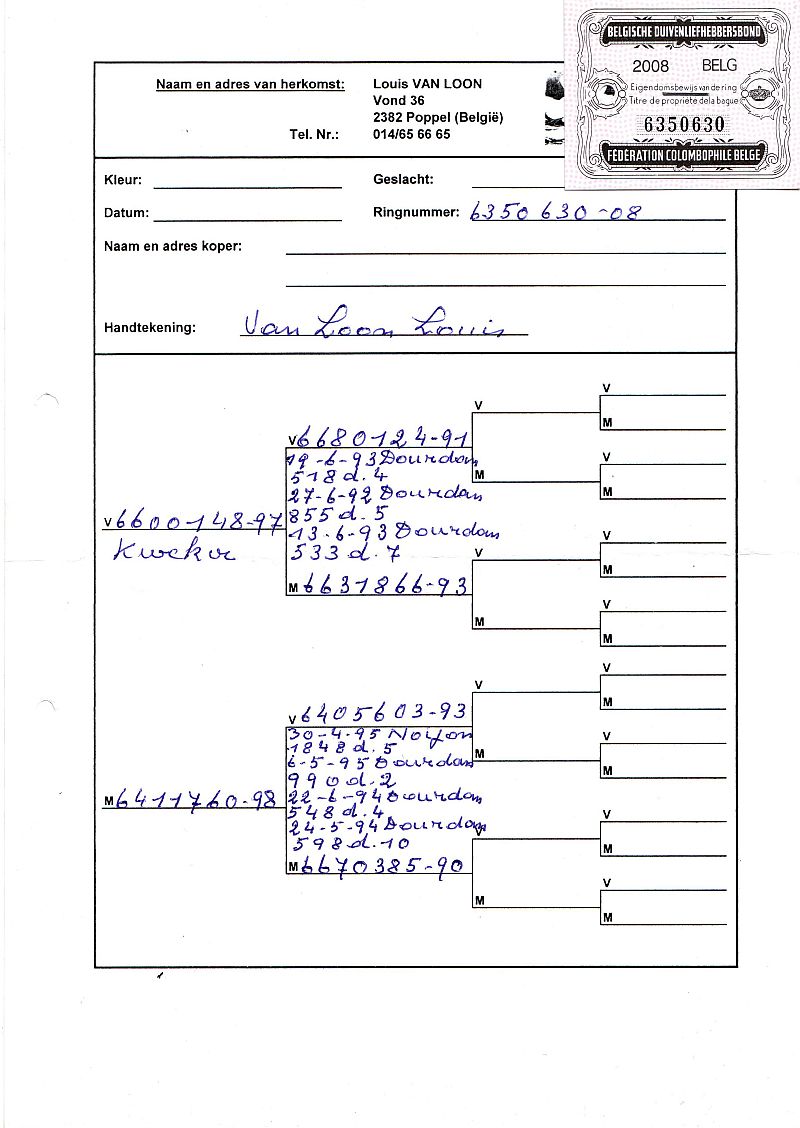 BELGISCHE DUIVENLIEFHEBBERSBOND
2008 BELG
Eigendomsbewijs van de ring
Titre de propriété de la bague
6350630
FÉDÉRATION COLOMBOPHILE BELGE
Naam en adres van herkomst: Louis VAN LOON
Vond 36
2382 Poppel (België)
Tel. Nr.: 014/65 66 65
Kleur: Geslacht:
Datum: Ringnummer: 6350 630-08
Naam en adres koper:
Handtekening: Van Loon Louis
V
V
M
V 6680124-91
19-6-93 Dourdan
518 d. 4
M
V
27-6-92 Dourdan
M
855 d. 5
V 6600148-97
13-6-93 Dourdan
533 d. 7
V
V
M
M 6631866-93
M
V
M
V
V
M
V 6405603-93
30-4-95 Noyon
1848 d. 5
M
V
6-5-95 Dourdan
M
990 d. 2
M 6411760-98
22-6-94 Dourdan
548 d. 4
24-5-94 Dourdan
598 d. 10
V
V
M
M 6670385-90
M
V
M